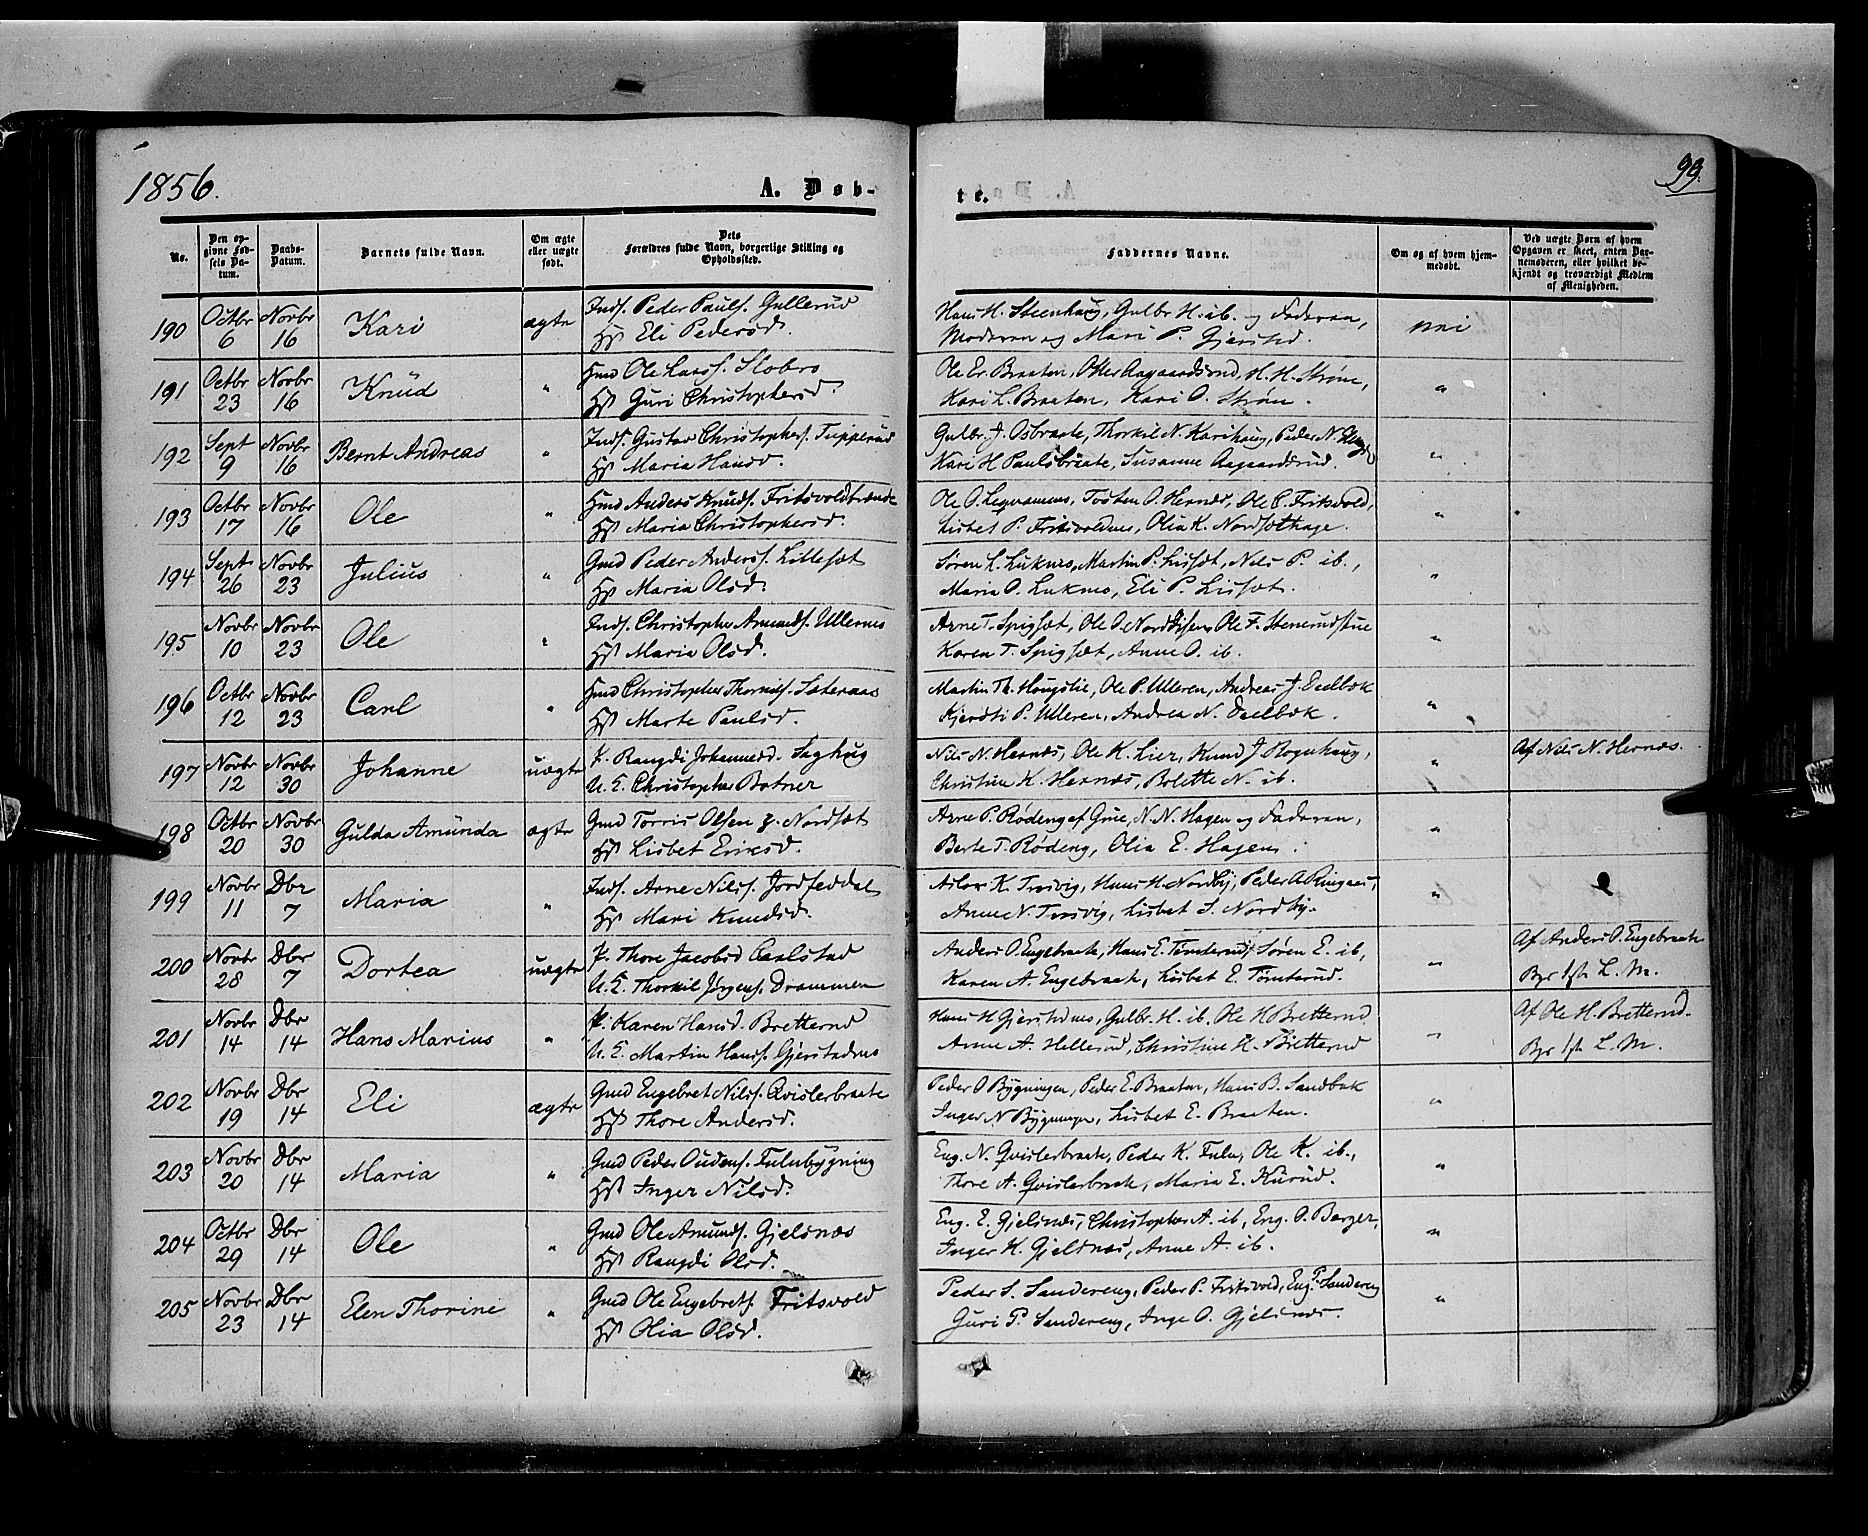 1856.
A. Døb-
te.
99.
No.
Den op-
givne Fød-
sels Da-
tum.
Daabs-
Datum.
Barnets fulde Navn.
Om ægte
eller uægte
født.
Dets
Forældres fulde Navn, borgerlige Stilling og
Opholdssted.
Faddernes Navne.
Om og af hvem hjem-
medøbt.
Ved uægte Børn af hvem
Opgaven er skeet, enten Bar-
nemoderen, eller hvilket be-
kjendt og troværdigt Medlem
af Menigheden.
190 Octbr 6 Novbr 16 Kari ægte Inds. Peder Pauls. Gullerud
Hst Eli Pedersd.
Hans H. Steenhaug, Gulbr. H. ib. og Faderen,
Moderen og Mari P. Gjersted.
nei
191 Octbr 23 Novbr 16 Knud " Hmd Ole Larss. Slobro
Hst Guri Christophersd.
Ole Er. Braaten, Otter Aagaardsrud, H. H. Strøm,
Kari L. Braaten, Kari O. Strøm.
"
192 Sept 9 Novbr 16 Bernt Andreas " Inds. Gustav Christophers. Tupperud
Hst Maria Hansd.
Gulbr. J. Osbraate, Thorkil N. Karihaug, Peder N.
Kari H Paulsbraate, Susanne Aagaardsrud.
"
193 Octbr 17 Novbr 16 Ole " Hmd Anders Knuds. Fritsvoldbrænde
Hst Maria Christophersd.
Ole O. Tosten O. Hernæs, Ole C. Fritsvold,
Lisbet P. Fritsvoldnes, Olia K. Nordsethage.
"
194 Sept 26 Novbr 23 Julius " Gmd Peder Anders. Lillesæt
Hst Maria Olsd.
Søren L. Luknes, Martin P. Lissæt, Nils P. ib.,
Maria O. Luknes, Eli P. Lissæt.
"
195 Novbr 10 Novbr 23 Ole " Inds. Christopher Amunds. Ullernes
Hst Maria Olsd.
Arne T. Spigsæt, Ole O. Ole F. Stenerudstue
Karen T. Spigsæt, Anne O. ib.
"
196 Octbr 12 Novbr 23 Carl " Hmd Christopher Sæteraas
Hst Marte Paulsd.
Martin Th. Haugslie, Ole P. Ulleren, Andreas J. Dælbæk
Kjersti P. Ulleren, Andrea N. Dælbæk.
"
197 Novbr 12 Novbr 30 Johanne uægte P. Rangdi Johannesd. Saghug
U. E. Christopher Botner
Nils N. Hernæs, Ole K. Lier, Knud J Rognhaug,
Christine K. Hernæs, Bolette N. ib.
"
Af Nils N. Hernæs.
198 Octbr 20 Novbr 30 Gulda Amunda ægte Gmd Torris Olsen p. Nordsæt
Hst Lisbet Eriksd.
Arne P. Rødeng af Grue, N. N. Hagen og Faderen,
Berte T. Rødeng, Olia E. Hagen.
"
199 Novbr 11 Dbr 7 Maria " Inds. Arne Nilss. Jordfeddal
Hst Mari Knudsd.
Aslov K. Trosvig, Hans H. Nordby, Peder A Ringaas,
Anne N. Trosvig, Lisbet S. Nordby.
"
200 Novbr 28 Dbr 7 Dortea uægte P. Thore Jacobsd Carlstad
U. E. Thorkil Jørgens. Drammen
Anders O. Engebraate, Hans E. Tomterud, Søren E. ib,
Karen A. Engebraate, Lisbet E. Tomterud.
"
Af Anders O. Engebraate
L. M.
201 Novbr 14 Dbr 14 Hans Marius " P. Karen Hansd. Bretterud
U. E. Martin Hanss. Gjerstadnes
Hans H Gjerstednes, Gulbr. H. ib, Ole H Bretterud
Anne A. Hellerud, Christine H. Bretterud
"
Af Ole H. Bretterud.
L. M.
202 Novbr 19 Dbr 14 Eli ægte Gmd Engebret Nilss. Qvislerbraate
Hst Thore Andersd.
Peder O Bygningen, Peder E. Braaten, Hans B. Sandbæk
Inger N Bygningen, Lisbet E. Braaten.
"
203 Novbr 20 Dbr 14 Maria " Gmd Peder Oudens. Fulubygning
Hst Inger Nilsd.
Eng. N. Qvislerbraate, Peder K. Fulu, Ole K. ib.,
Thore A. Qvislerbraate, Maria E. Kurud.
"
204 Octbr 29 Dbr 14 Ole " Gmd Ole Amunds. Gjelsnæs
Hst Rangdi Olsd.
Eng. E. Gjelsnæs, Christopher A. ib, Eng. O. Berger,
Inger K. Gjelsnæs, Anne A. ib.
"
205 Novbr 23 Dbr 14 Elen Thorine " Gmd Ole Engebrets. Fritsvold
Hst Olia Olsd.
Peder S. Sandereng, Peder P. Fritsvold, Eng. P. Sandereng
Guri P. Sandereng, Inge O. Gjelsnæs.
"